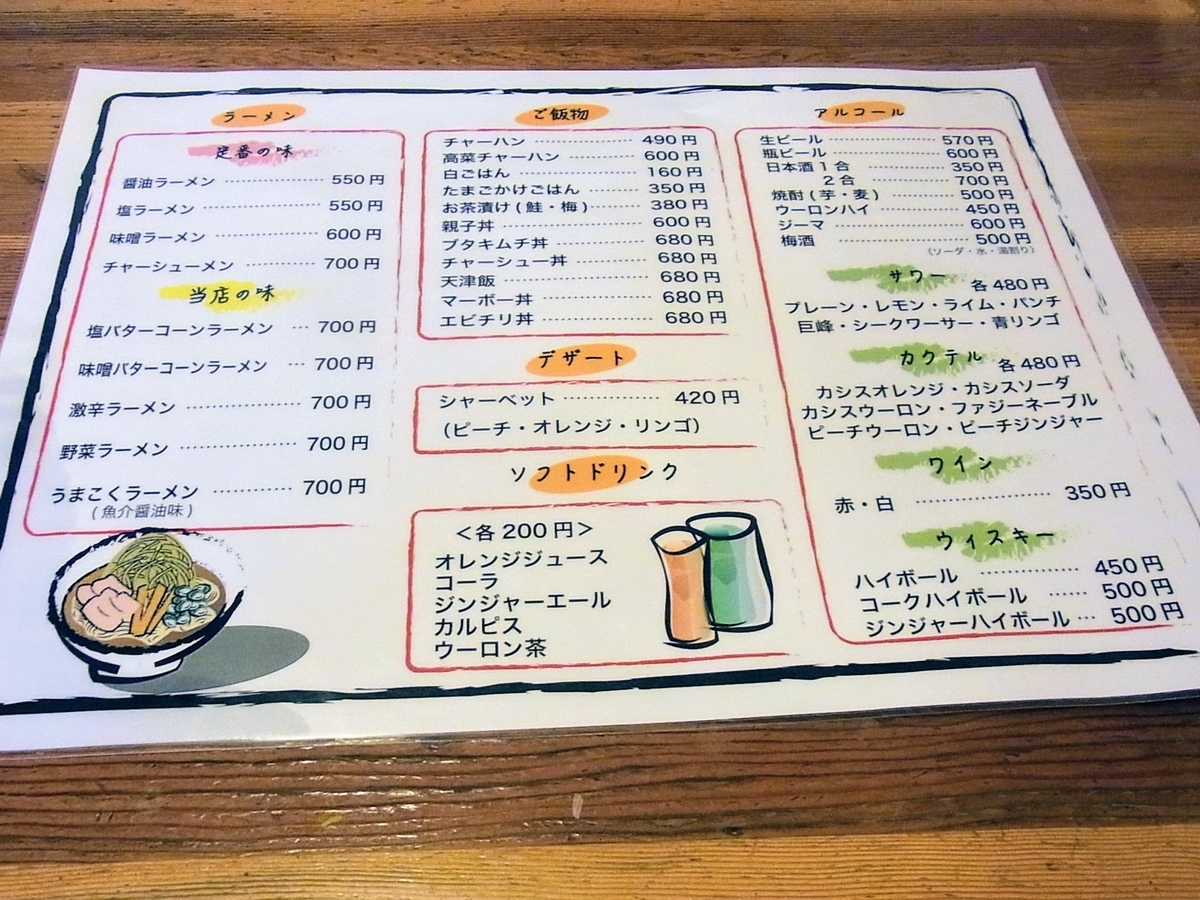 ラーメン
定番の味
醤油ラーメン ………… 550円
塩ラーメン ………… 550円
味噌ラーメン ………… 600円
チャーシューメン ………… 700円
当店の味
塩バターコーンラーメン … 700円
味噌バターコーンラーメン … 700円
激辛ラーメン ………… 700円
野菜ラーメン ………… 700円
うまこくラーメン ………… 700円
(魚介醤油味)
ご飯物
チャーハン ………… 490円
高菜チャーハン ………… 600円
白ごはん ………… 160円
たまごかけごはん ………… 350円
お茶漬け(鮭・梅) ………… 380円
親子丼 ………… 600円
ブタキムチ丼 ………… 680円
チャーシュー丼 ………… 680円
天津飯 ………… 680円
マーボー丼 ………… 680円
エビチリ丼 ………… 680円
デザート
シャーベット ………… 420円
(ピーチ・オレンジ・リンゴ)
ソフトドリンク
<各200円>
オレンジジュース
コーラ
ジンジャーエール
カルピス
ウーロン茶
アルコール
生ビール ………… 570円
瓶ビール ………… 600円
日本酒1合 ………… 350円
2合 ………… 700円
焼酎(芋・麦) ………… 500円
ウーロンハイ ………… 450円
ジーマ ………… 600円
梅酒 ………… 500円
(ソーダ・水・湯割り)
サワー 各480円
プレーン・レモン・ライム・パンチ
巨峰・シークワーサー・青リンゴ
カクテル 各480円
カシスオレンジ・カシスソーダ
カシスウーロン・ファジーネーブル
ピーチウーロン・ピーチジンジャー
ワイン
赤・白 ………… 350円
ウィスキー
ハイボール ………… 450円
コークハイボール …… 500円
ジンジャーハイボール … 500円